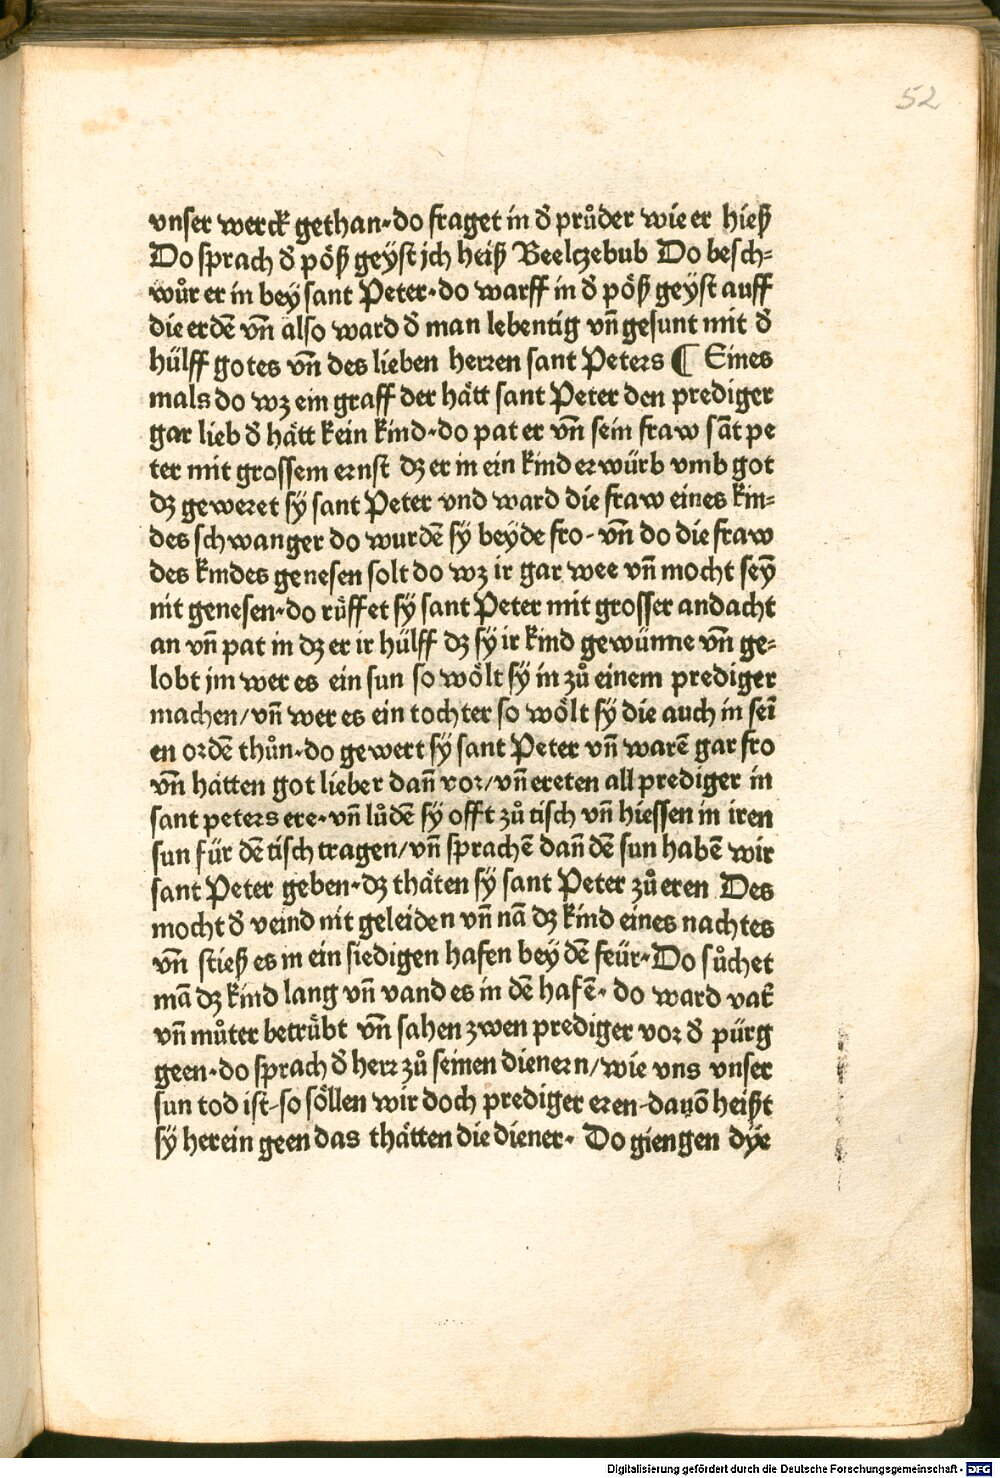 52
vnser werck gethan·do fraget in đ průder wie er hieß
Do sprach đ pöß geÿst jch heiß Beelczebub Do besch⸗
wůr er in beÿ sant Peter·do warff in đ pöß geÿst auff
die erdē vñ also ward đ man lebentig vñ gesunt mit đ
hülff gotes vñ des lieben herren sant Peters ¶ Eines
mals do wz ein graff der hätt sant Peter den prediger
gar lieb đ hätt kein kind·do pat er vñ sein fraw sāt pe
ter mit grossem ernst dz er in ein kind erwürb vmb got
dz geweret sÿ sant Peter vnd ward die fraw eines kin⸗
des schwanger do wurdē sÿ beÿde fro·vñ do die fraw
des kindes genesen solt do wz ir gar wee vñ mocht seȳ
nit genesen·do rüffet sÿ sant Peter mit grosser andacht
an vñ pat in dz er ir hülff dz sÿ ir kind gewünne vñ ge⸗
lobt jm wer es ein sun so wölt sÿ in zů einem prediger
machen/vñ wer es ein tochter so wölt sÿ die auch in seī
en ordē thůn·do gewert sÿ sant Peter vñ warē gar fro
vñ hätten got lieber dañ vor/vñ ereten all prediger in
sant peters ere·vñ lůdē sÿ offt zů tisch vñ hiessen in iren
sun für dē tisch tragen/vñ sprachē dañ dē sun habē wir
sant Peter geben·dz thäten sÿ sant Peter zů eren Des
mocht đ veind nit geleiden vñ nā dz kind eines nachtes
vñ stieß es in ein siedigen hafen beÿ dē feür·Do sůchet
mā dz kind lang vñ vand es in dē hafē· do ward vat̄
vñ můter betrübt vñ sahen zwen prediger vor đ pürg
geen·do sprach đ herr zů seinen dienern/wie vns vnser
sun tod ist·so söllen wir doch prediger eren·dauō heißt
sÿ herein geen das thätten die diener· Do giengen dÿe
Digitalisierung gefördert durch die Deutsche Forschungsgemeinschaft - DFG